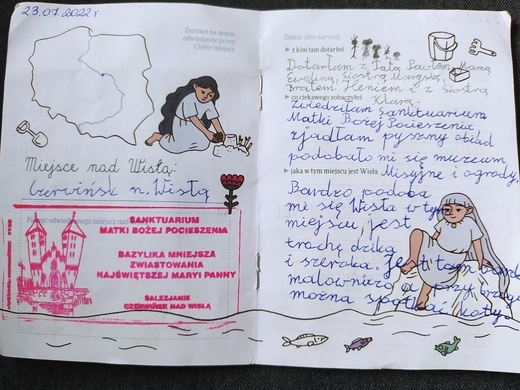 23.07.2022 r.
Zaznacz na mapie
odwiedzone przez
Ciebie miejsce
Miejsce nad Wisłą:
Czerwińsk n. Wisłą
SANKTUARIUM
MATKI BOŻEJ POCIESZENIA
BAZYLIKA MNIEJSZA
ZWIASTOWANIA
NAJŚWIĘTSZEJ MARYI PANNY
SALEZJANIE
CZERWIŃSK NAD WISŁĄ
Zapisz albo narysuj:
z kim tam dotarłeś
Dotarłam z Tatą Pawłem, Mamą
Eweliną, Siostrą Marysią,
Bratem Heniem i z Siostrą
co ciekawego zobaczyłeś Klarą.
Zwiedziłam sanktuarium
Matki Bożej Pocieszenia,
zjadłam pyszny obiad
podobało mi się muzeum
jaka w tym miejscu jest Wisła Misyjne i ogrody.
Bardzo podoba
mi się Wisła w tym
miejscu, jest
trochę dzika
i szeroka. Jest tam
malowniczo a przy brzegu
można spotkać koty